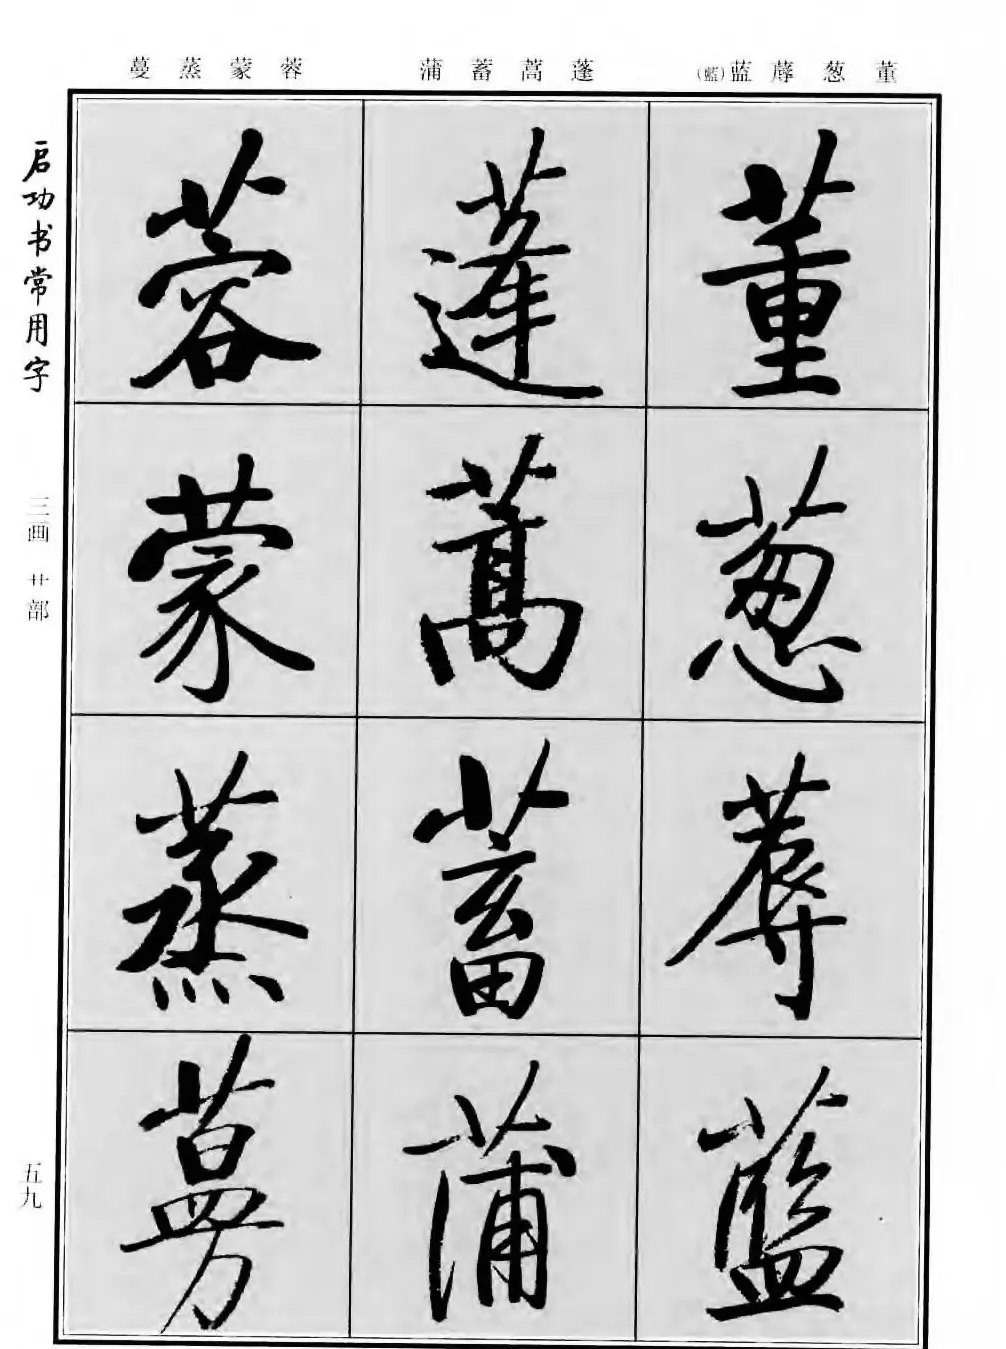 董葱蓐蓝(藍)
蓬蒿蓄蒲
蓉蒙蒸蔓
董葱蓐藍
蓬蒿蓄蒲
蓉蒙蒸蔓
启功书常用字
三画 艹部
五九